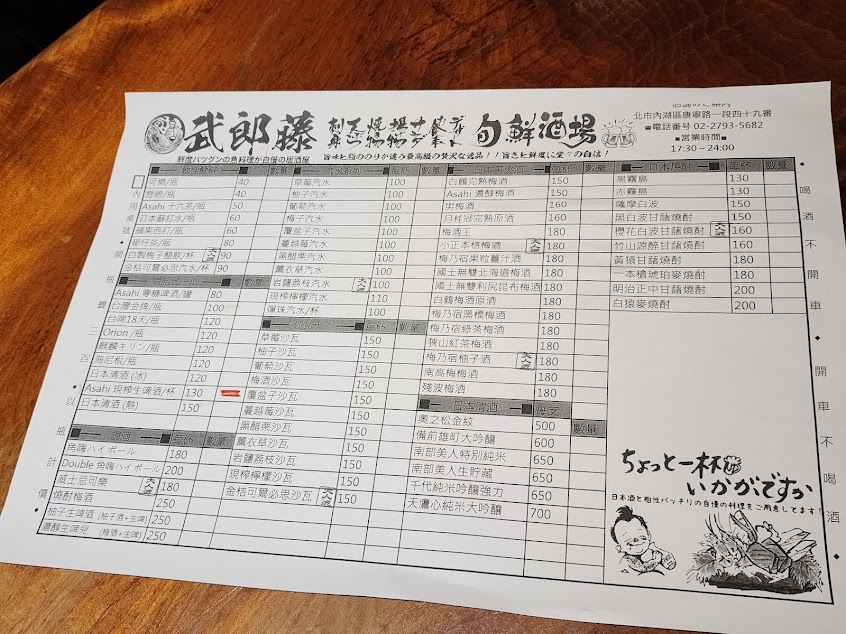 武郎藤
旬鮮酒場
鮮度バツグンの魚料理が自慢の居酒屋
旨味と脂ののりが違う最高級の贅沢な逸品!!旨さと鮮度に堂々の自信!
北市內湖區康寧路一段四十九番
☎電話番号 02-2793-5682
■営業時間■
17:30～24:00
數量
可樂/瓶 40
雪碧/瓶 40
Asahi 十六茶/瓶 50
日本蘇打水/瓶 60
蘋果西打/瓶 60
麥仔茶/瓶 80
自製梅子醋飲/杯 大人氣 90
金桔可爾必思汽水/杯 90
數量
Asahi 零糖啤酒/罐 80
台灣金牌/瓶 100
台啤18天/瓶 120
Orion /瓶 120
麒麟キリン/瓶 120
海尼根/瓶 120
日本清酒 (冰) 120
Asahi 現榨生啤酒/杯 130
日本清酒 (熱) 150
調酒 每杯 數量
角嗨ハイボール 180
Double 角嗨ハイボール 200
威士忌可樂 大人氣 180
燒酎梅酒 250
柚子生啤酒 (柚子酒+生啤) 250
濃醇生啤兒 (梅酒+生啤) 250
汽水系列 每杯 數量
草莓汽水 100
柚子汽水 100
葡萄汽水 100
梅子汽水 100
覆盆子汽水 100
蔓越莓汽水 100
黑醋栗汽水 100
薰衣草汽水 100
岩鹽荔枝汽水 大人氣 100
現榨檸檬汽水 110
彈珠汽水/杯 100
每杯 數量
草莓沙瓦 150
柚子沙瓦 150
葡萄沙瓦 150
梅酒沙瓦 150
覆盆子沙瓦 150
蔓越莓沙瓦 150
黑醋栗沙瓦 150
薰衣草沙瓦 150
岩鹽荔枝沙瓦 150
現榨檸檬沙瓦 150
金桔可爾必思沙瓦 大人氣 150
每杯 數量
白鶴完熟梅酒 150
Asahi 濃醇梅酒 150
男梅酒 160
月桂冠完熟原酒 160
梅酒王 180
小正本格梅酒 大人氣 180
梅乃宿果粒薑汁酒 180
國士無雙北海道梅酒 180
國士無雙利尻昆布梅酒 180
白鶴梅酒原酒 180
梅乃宿黑標梅酒 180
梅乃宿綠茶梅酒 180
狹山紅茶梅酒 180
梅乃宿柚子酒 大人氣 180
南高梅梅酒 180
殘波梅酒 180
日本清酒 每支 數量
奧之松金紋 500
備前雄町大吟釀 600
南部美人特別純米 650
南部美人生貯藏 650
千代純米吟釀強力 650
天鷹心純米大吟釀 700
日本燒酎 每杯 數量
黑霧島 130
赤霧島 130
薩摩白波 150
黑白波甘藷燒酎 150
櫻花白波甘藷燒酎 大人氣 160
竹山源酔甘藷燒酎 160
黃猿甘藷燒酎 180
一本槍琥珀麥燒酎 180
明治正中甘藷燒酎 200
白猿麥燒酎 200
ちょっと一杯
いかがですか
日本酒と相性バッチリの自慢の料理をご用意してます!
內用桌號
開瓶費三百以瓶計價
喝酒不開車
開車不喝酒